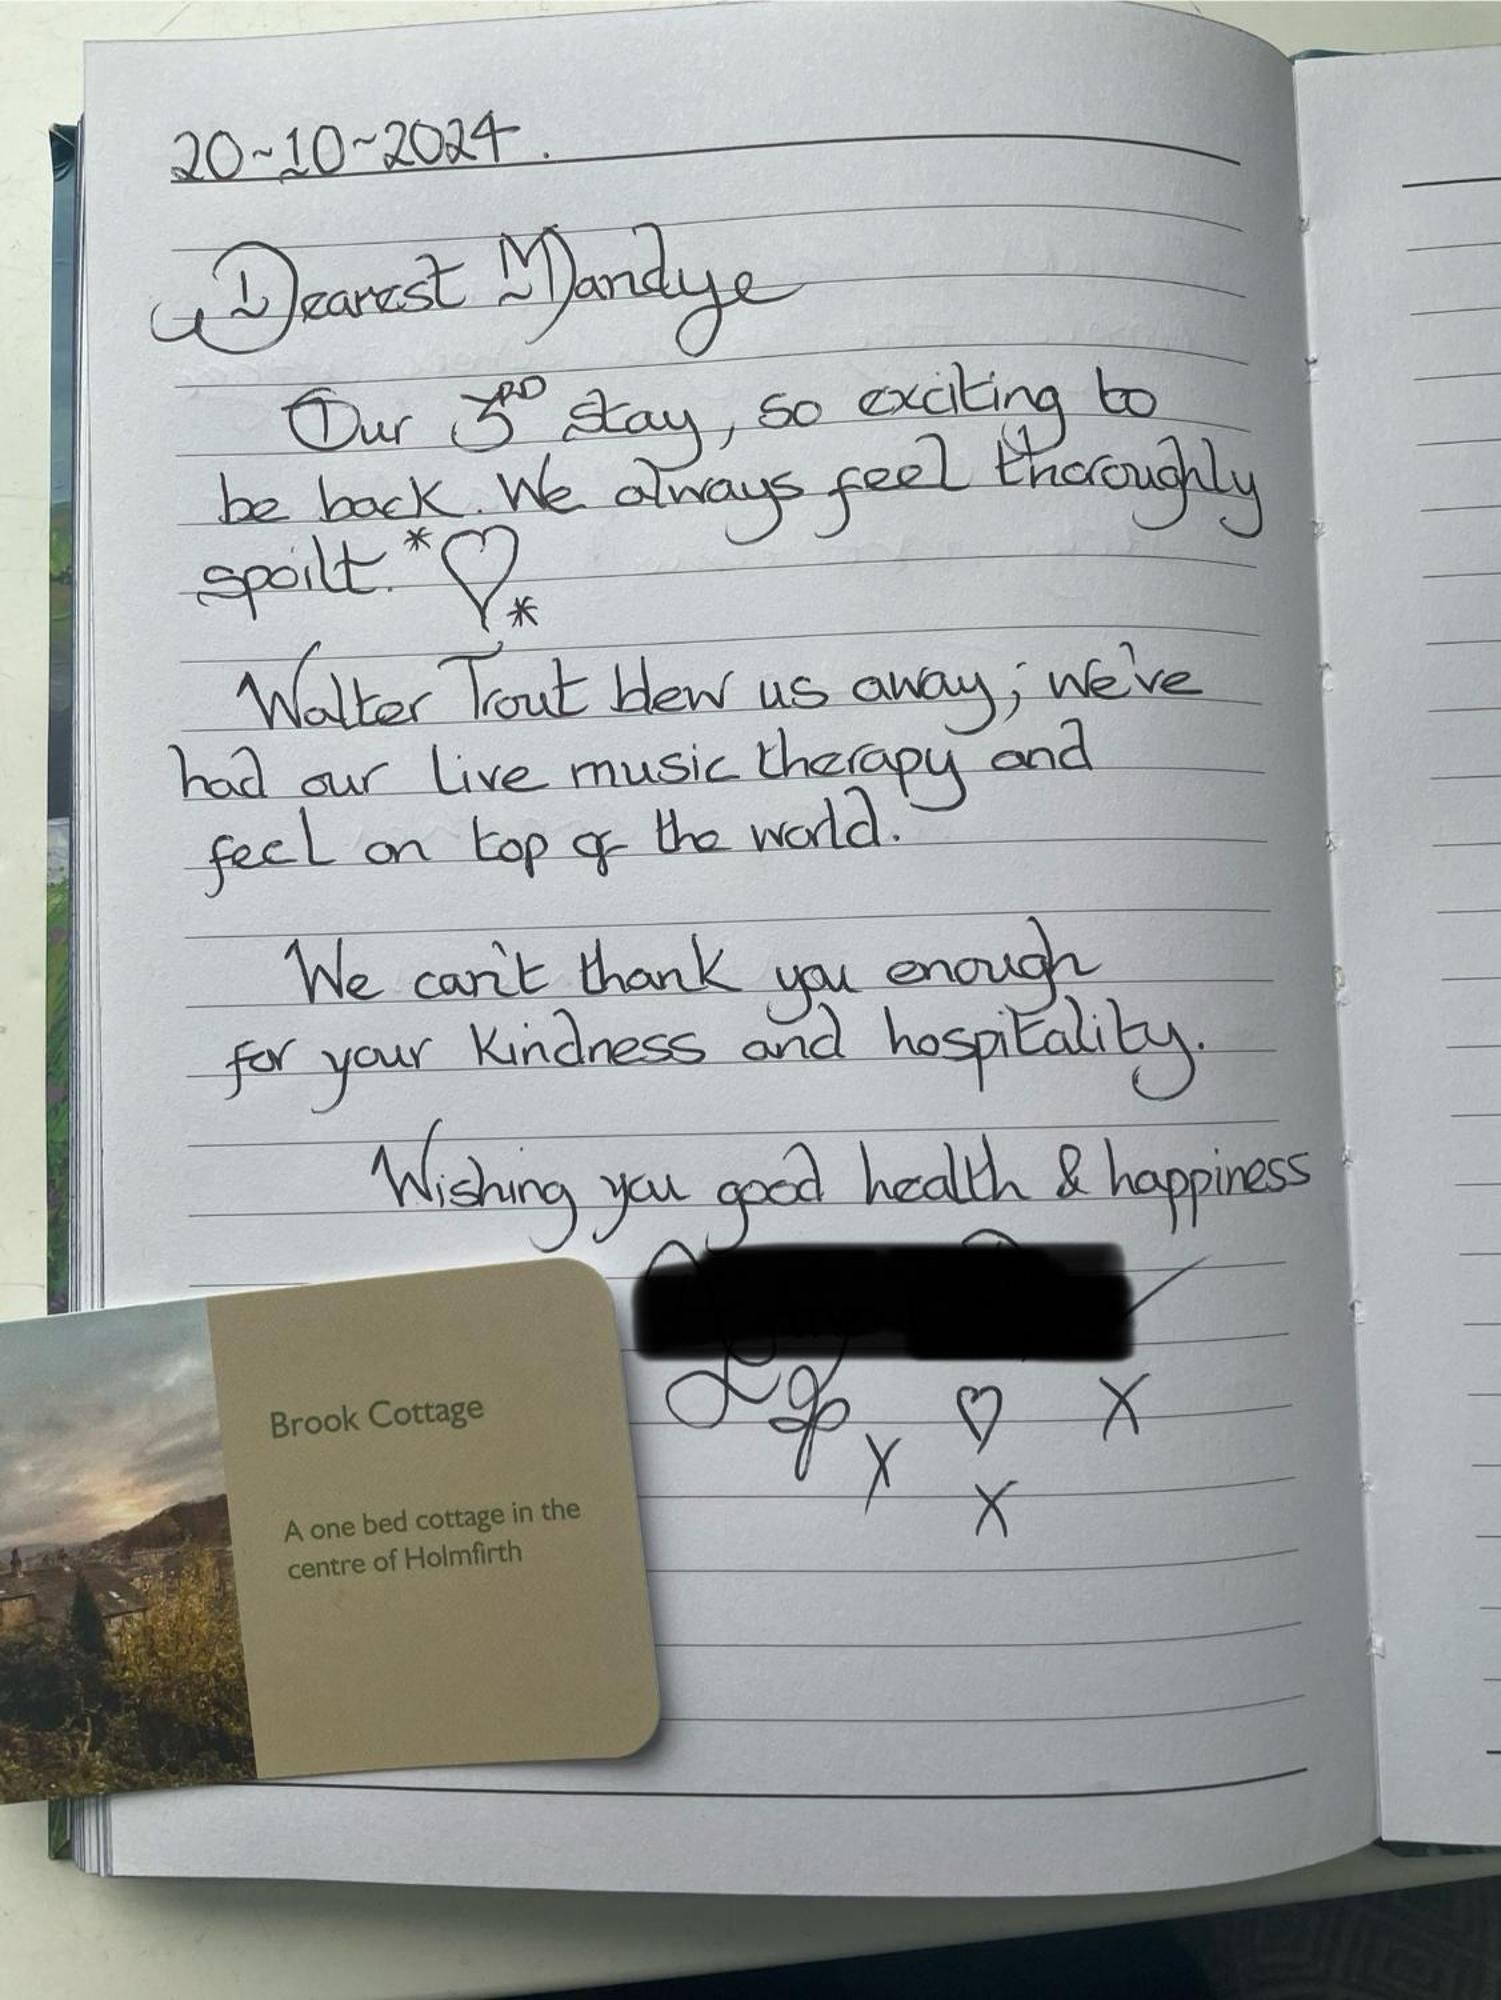 20~10~2024.
Dearest Mandye
Our 3RD stay, so exciting to
be back. We always feel thoroughly
spoilt. *♡*
Walter Trout blew us away; we've
had our live music therapy and
feel on top of the world.
We can't thank you enough
for your kindness and hospitality.
Wishing you good health & happiness
X ♡ X
X
Brook Cottage
A one bed cottage in the
centre of Holmfirth